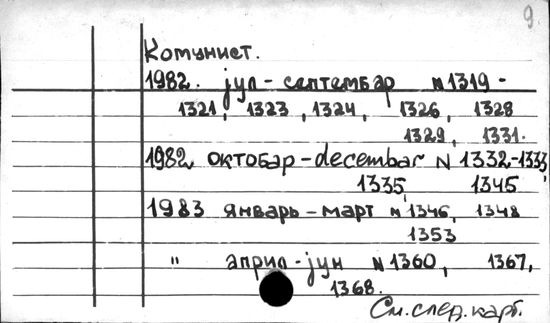 9.
Комунист.
1982. јул - септембар N 1319 -
1321, 1323, 1324, 1326, 1328
1329, 1331.
1982 октобар - decembar N 1332-1333,
1335, 1345
1983 январь - март N 1346, 1348
1353
" април - јун N 1360, 1367,
1368.
См. след. карт.